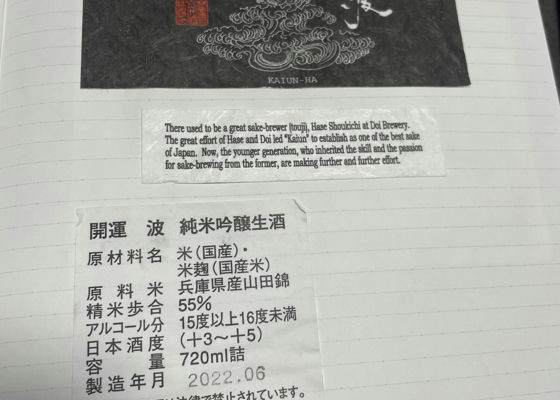 波
KAIUN-HA
There used to be a great sake-brewer (touji), Hase Shoukichi at Doi Brewery.
The great effort of Hase and Doi led "Kaiun" to establish as one of the best sake
of Japan. Now, the younger generation, who inherited the skill and the passion
for sake-brewing from the former, are making further and further effort.
開運 波 純米吟醸生酒
原材料名 米(国産)・
米麹(国産米)
原料米 兵庫県産山田錦
精米歩合 55%
アルコール分 15度以上16度未満
日本酒度 (+3~+5)
容量 720ml詰
製造年月 2022.06
は法律で禁止されています。